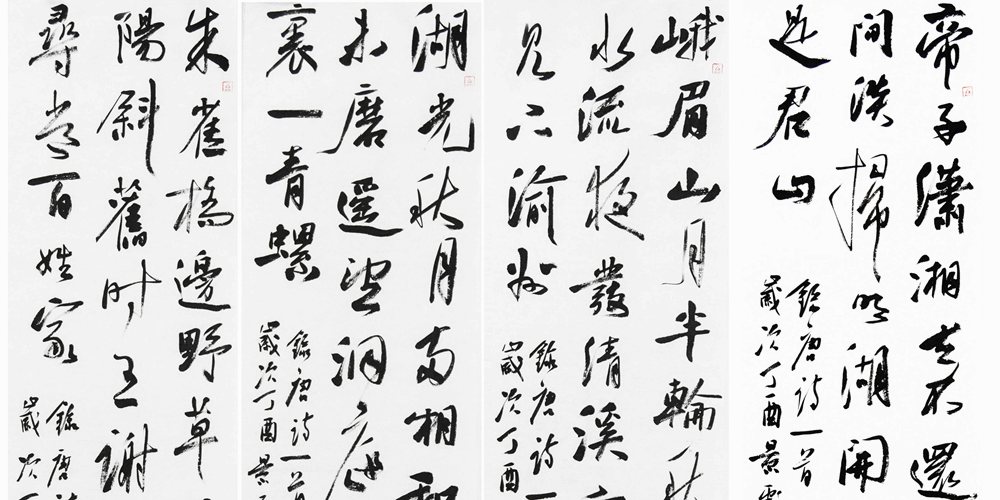 帝子瀟湘去不還
間淡掃明湖開
是君山
錄唐詩一首
歲次丁酉景
峨眉山月半輪秋
水流夜發清溪
見下渝州
錄唐詩一
歲次丁酉
湖光秋月兩相和
未磨遥望洞庭
裏一青螺
錄唐詩一首
歲次丁酉景
朱雀橋邊野草
陽斜舊時王謝
尋常百姓家
錄唐
歲次